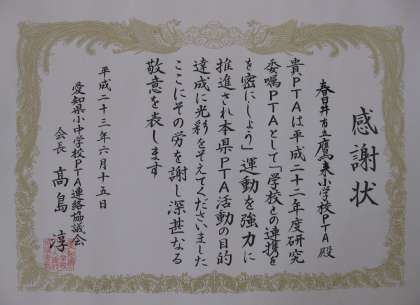 感謝状
春日井市立鷹来小学校PTA殿
貴PTAは平成二十二年度研究
委嘱PTAとして「学校との連携を
を密にしよう」運動を強力に
推進され本県PTA活動の目的
達成に光彩をそえてくださいました
ここにその労を謝し深甚なる
敬意を表します
平成二十三年六月十五日
愛知県小中学校PTA連絡協議会
会長 高島淳